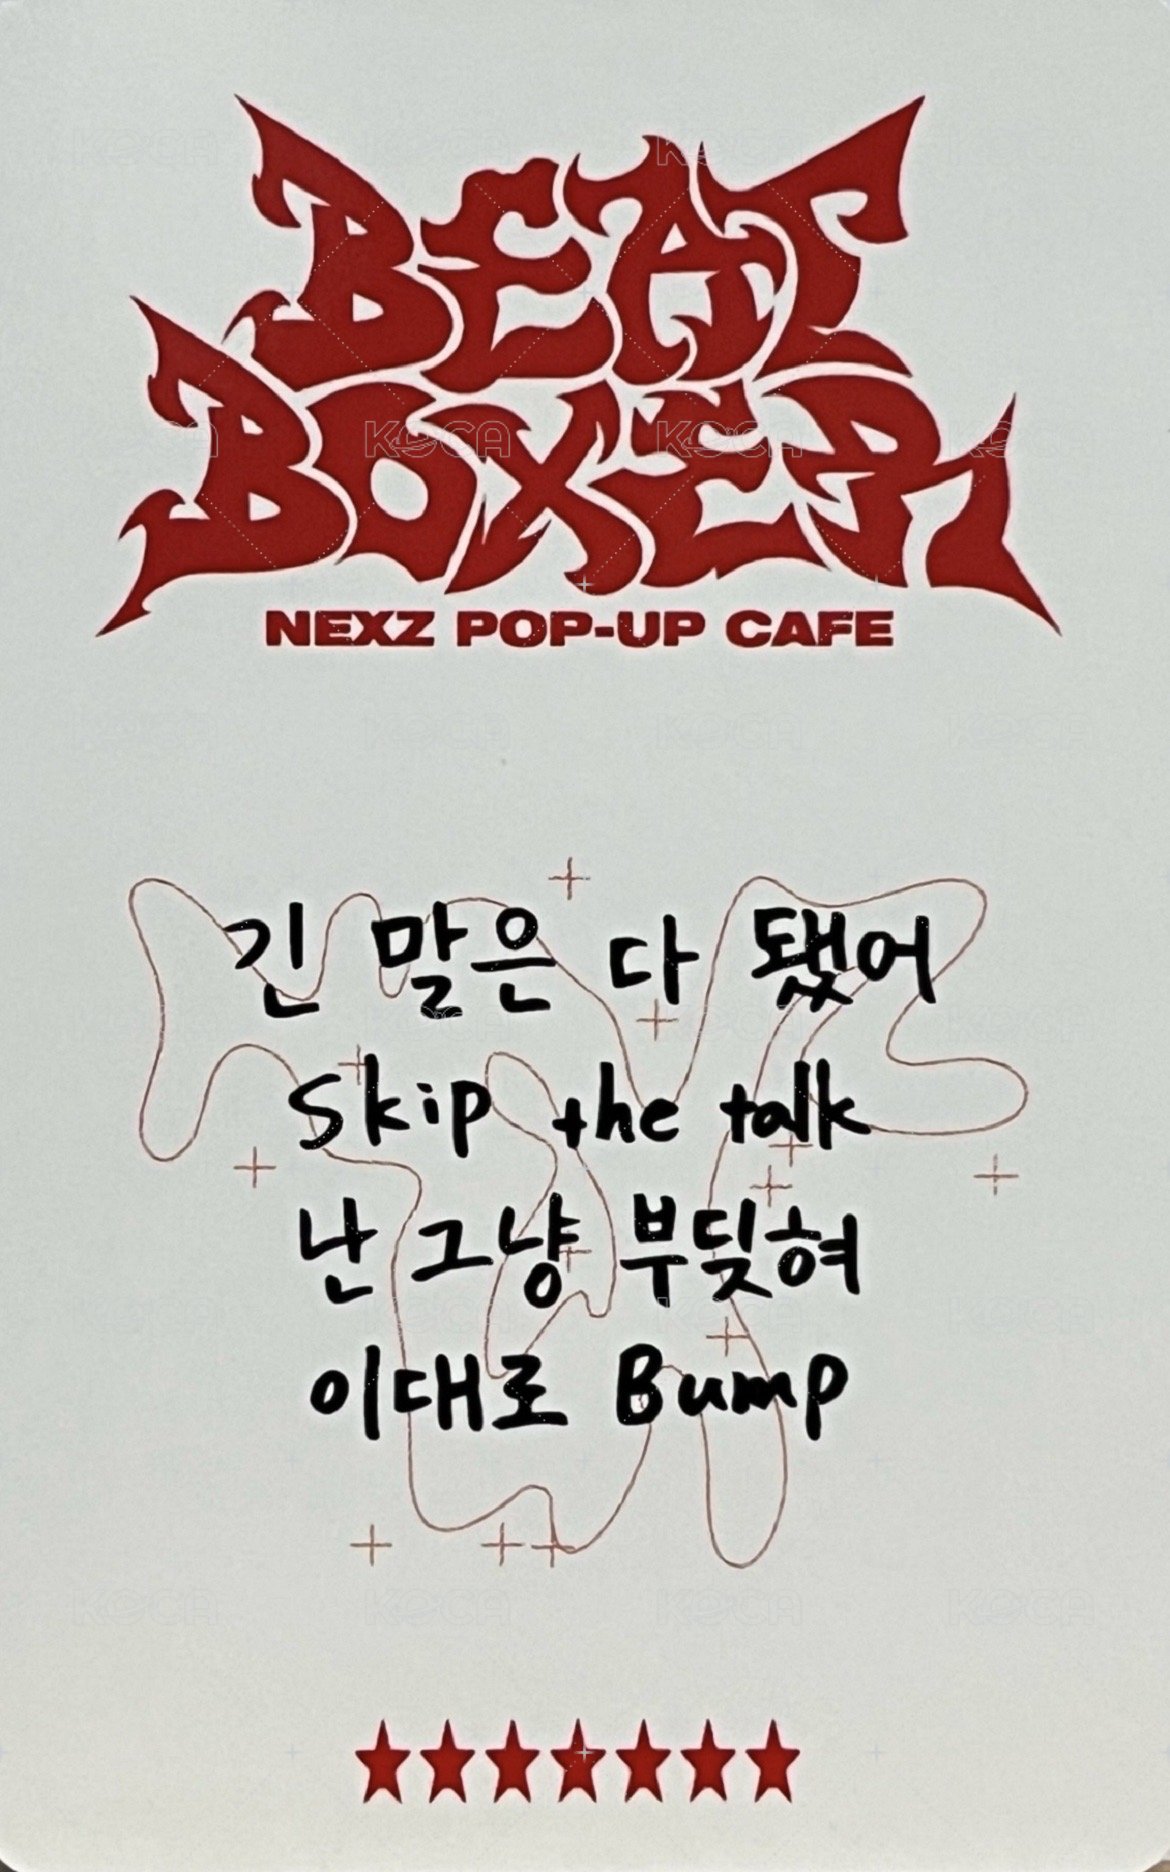 BEAT
BOXER
NEXZ POP-UP CAFE
긴 말은 다 됐어
Skip the talk
난 그냥 부딪혀
이대로 Bump
KOCA